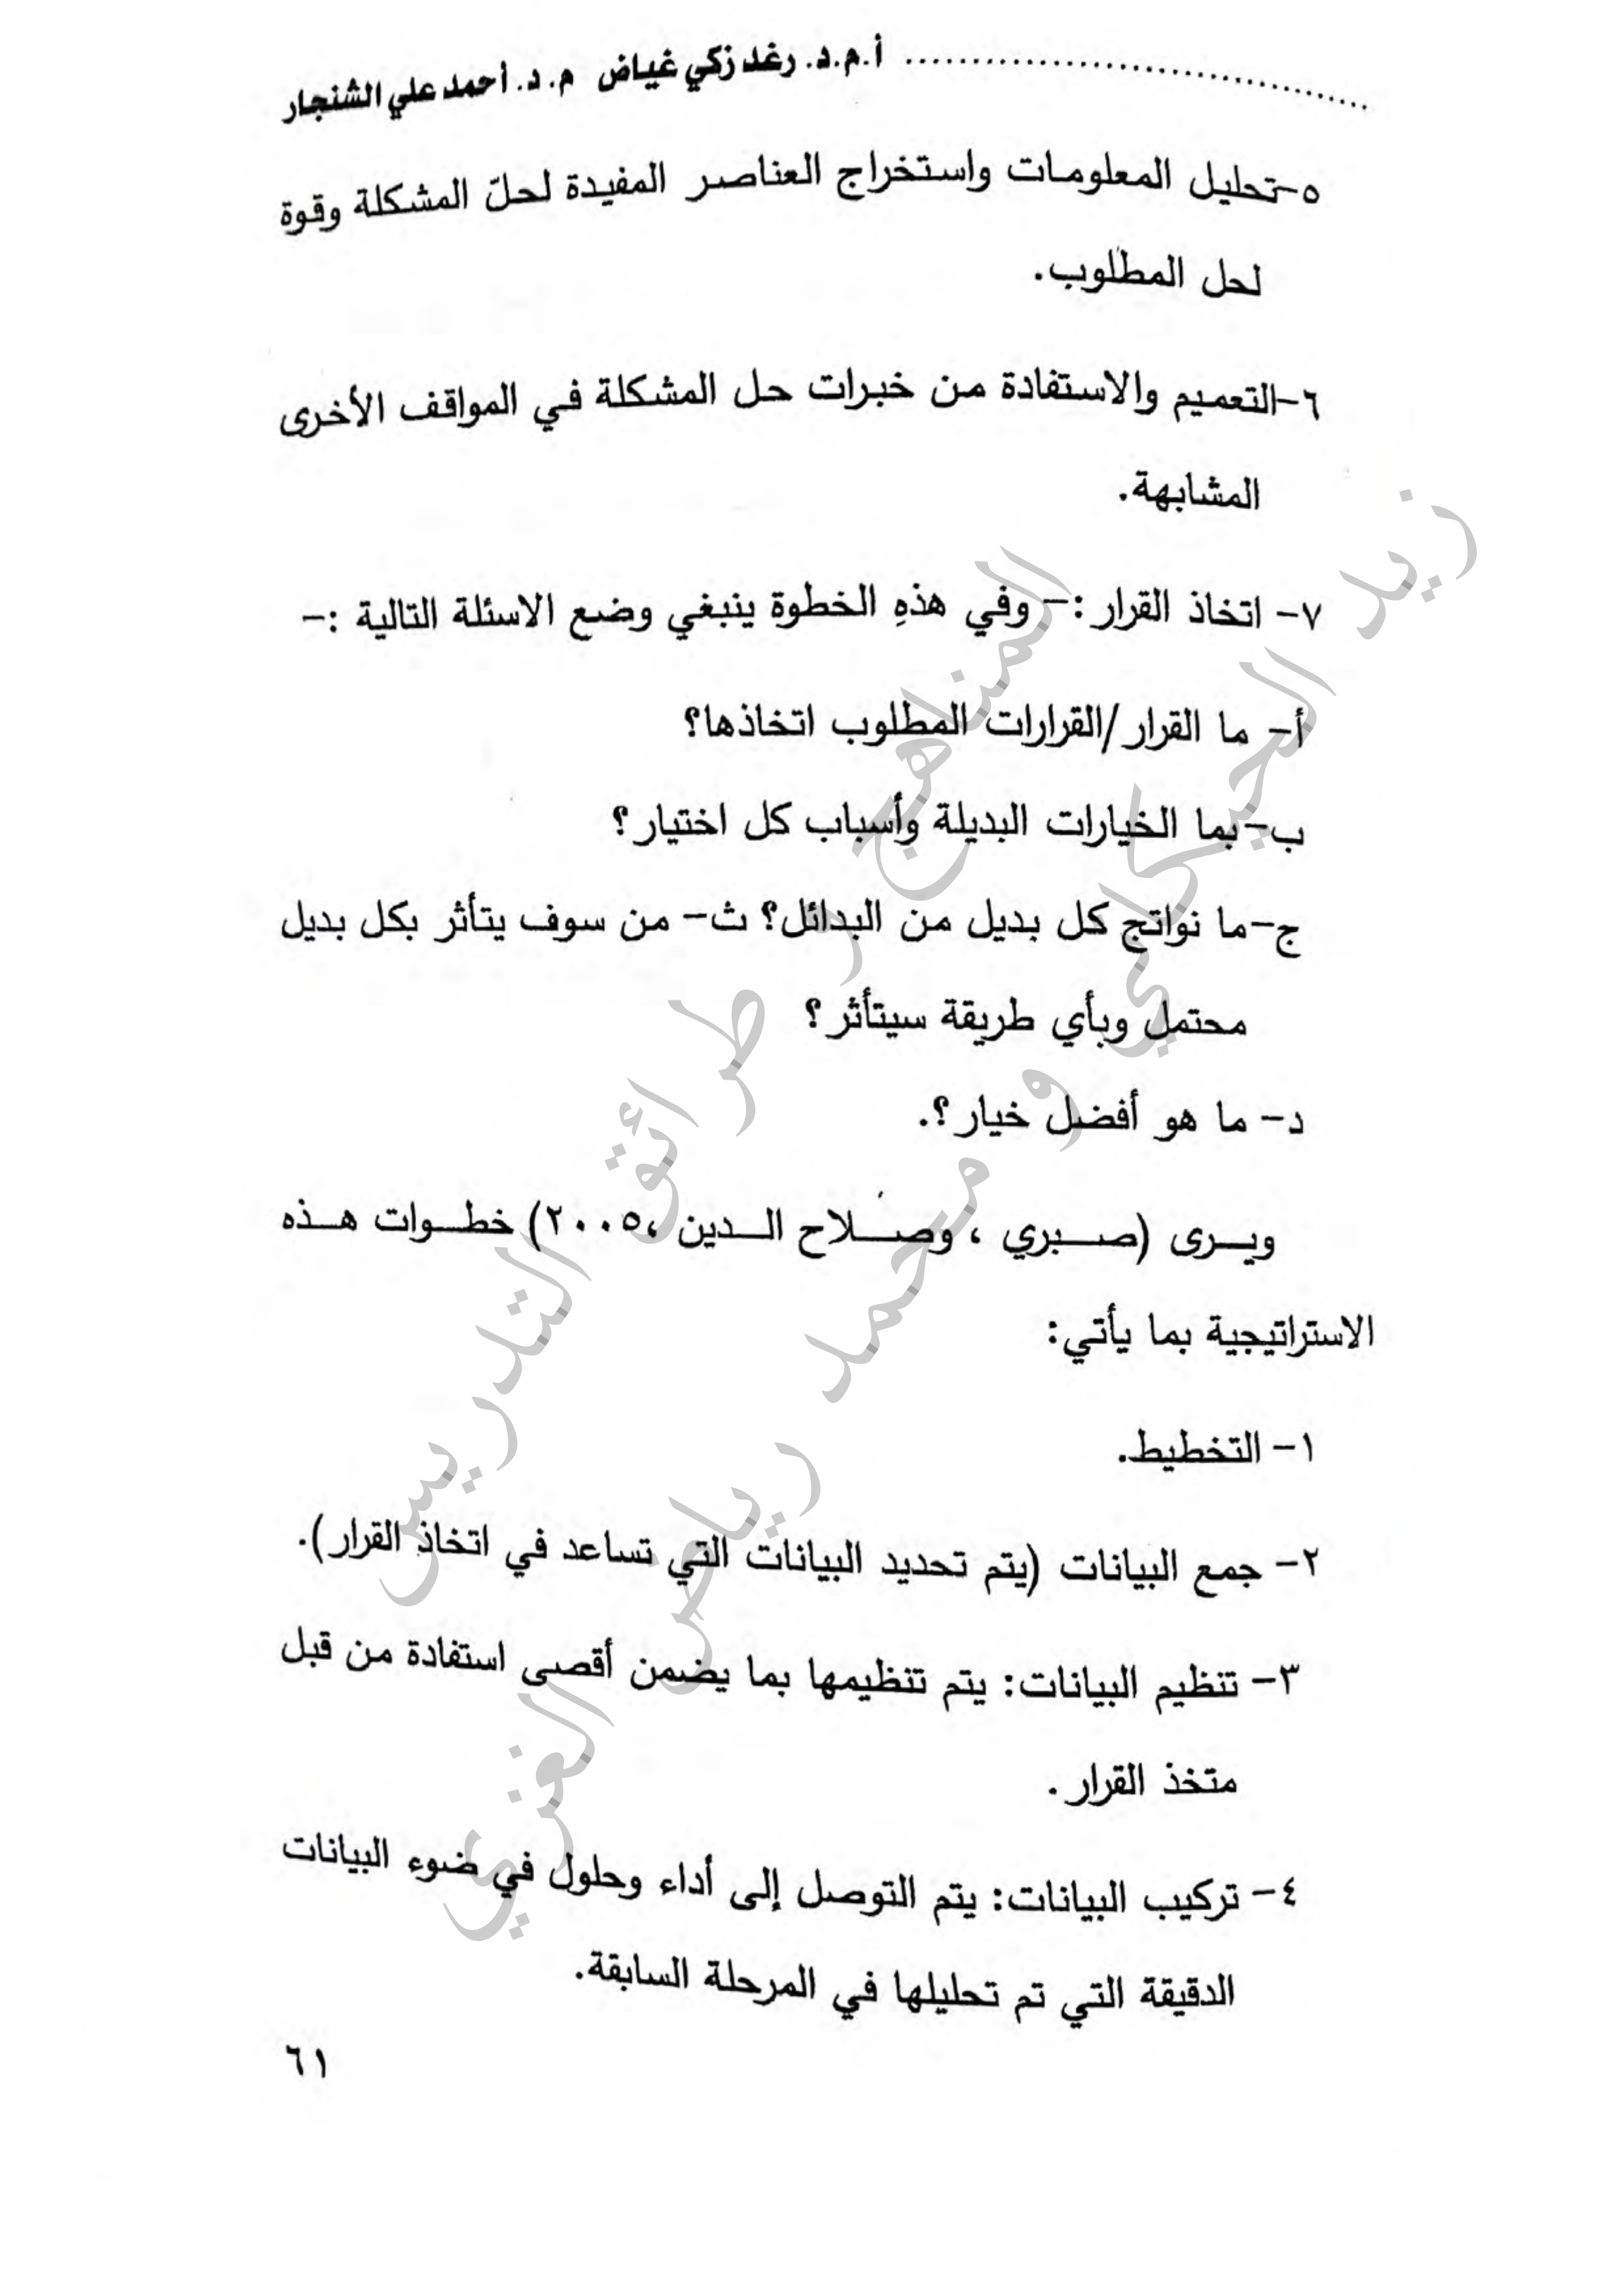 أ.م.د. رغد زكي غياض م. د. أحمد علي الشنجار
٥-تحليل المعلومات واستخراج العناصر المفيدة لحلّ المشكلة وقوة
لحل المطلوب.
٦-التعميم والاستفادة من خبرات حل المشكلة في المواقف الأخرى
المشابهة.
٧- اتخاذ القرار:- وفي هذهِ الخطوة ينبغي وضع الاسئلة التالية :-
أ- ما القرار/القرارات المطلوب اتخاذها؟
ب-بما الخيارات البديلة وأسباب كل اختيار؟
ج-ما نواتج كل بديل من البدائل؟ ث- من سوف يتأثر بكل بديل
محتمل وبأي طريقة سيتأثر؟
د- ما هو أفضل خيار؟.
ويرى (صبري ، وصلاح الدين ،٢٠٠٥) خطوات هذه
الاستراتيجية بما يأتي:
١- التخطيط.
٢- جمع البيانات (يتم تحديد البيانات التي تساعد في اتخاذ القرار).
٣- تنظيم البيانات: يتم تنظيمها بما يضمن أقصى استفادة من قبل
متخذ القرار.
٤- تركيب البيانات: يتم التوصل إلى أداء وحلول في ضوء البيانات
الدقيقة التي تم تحليلها في المرحلة السابقة.
٦١
المناهج و طرائق التدريس
زيد الحيكاني و محمد رياض الغزي